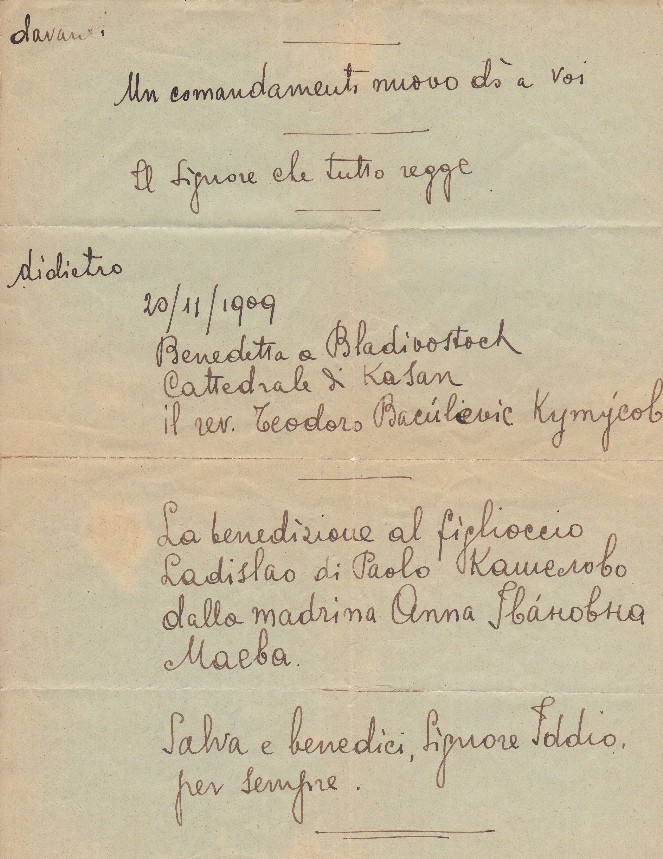 davanti
Un comandamento nuovo dò a voi
Il Signore che tutto regge
didietro
20/11/1909
Benedetta a Bladivostoch
Cattedrale di Kasan
il rev. Teodoro Bacúlievic Kymýcob
La benedizione al figlioccio
Ladislao di Paolo Кашелово
dalla madrina Anna Ivánовна
Маева.
Salva e benedici, Signore Iddio,
per sempre.